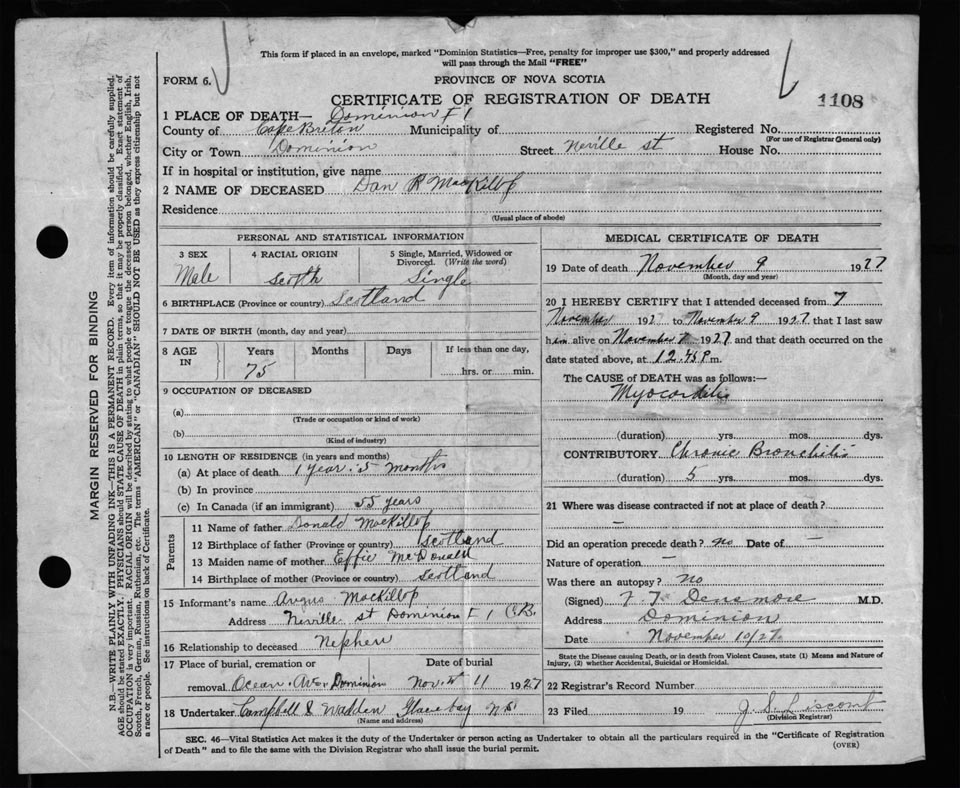 This form if placed in an envelope, marked "Dominion Statistics—Free, penalty for improper use $300," and properly addressed
will pass through the Mail "FREE"
FORM 6.
PROVINCE OF NOVA SCOTIA
CERTIFICATE OF REGISTRATION OF DEATH
1108
1 PLACE OF DEATH— Dominion # 1
County of Cape Breton Municipality of Registered No.
(For use of Registrar General only)
City or Town Dominion Street Neville St House No.
If in hospital or institution, give name
2 NAME OF DECEASED Dan R MacKillop
Residence
(Usual place of abode)
PERSONAL AND STATISTICAL INFORMATION
3 SEX 4 RACIAL ORIGIN 5 Single, Married, Widowed or
Divorced. (Write the word)
Male Scotch Single
6 BIRTHPLACE (Province or country) Scotland
7 DATE OF BIRTH (month, day and year)
8 AGE IN Years Months Days If less than one day,
75 hrs. or min.
9 OCCUPATION OF DECEASED
(a)
(Trade or occupation or kind of work)
(b)
(Kind of industry)
10 LENGTH OF RESIDENCE (in years and months)
(a) At place of death 1 year . 5 months
(b) In province
(c) In Canada (if an immigrant) 55 years
Parents
11 Name of father Donald MacKillop
12 Birthplace of father (Province or country) Scotland
13 Maiden name of mother Effie McDonald
14 Birthplace of mother (Province or country) Scotland
15 Informant's name Angus MacKillop
Address Neville St Dominion # 1 C.B.
16 Relationship to deceased Nephew
17 Place of burial, cremation or Date of burial
removal Ocean Ave Dominion Nov. 11 1927
18 Undertaker Campbell & Wadden Glace bay N.S.
(Name and address)
MEDICAL CERTIFICATE OF DEATH
19 Date of death November 9 1927
(Month, day and year)
20 I HEREBY CERTIFY that I attended deceased from 7
November 1927 to November 9 1927 that I last saw
him alive on November 7 1927 and that death occurred on the
date stated above, at 12.45 P.m.
The CAUSE of DEATH was as follows:—
Myocarditis
(duration) yrs. mos. dys.
CONTRIBUTORY Chronic Bronchitis
(duration) 5 yrs. mos. dys.
21 Where was disease contracted if not at place of death?
—
Did an operation precede death? no Date of —
Nature of operation —
Was there an autopsy? no
(Signed) F. T. Densmore M.D.
Address Dominion
Date November 10/27
State the Disease causing Death, or in death from Violent Causes, state (1) Means and Nature of
Injury, (2) whether Accidental, Suicidal or Homicidal.
22 Registrar's Record Number
23 Filed 19 J. S. Liscomb
(Division Registrar)
SEC. 46—Vital Statistics Act makes it the duty of the Undertaker or person acting as Undertaker to obtain all the particulars required in the "Certificate of Registration
of Death" and to file the same with the Division Registrar who shall issue the burial permit.
(OVER)
MARGIN RESERVED FOR BINDING
N.B.—WRITE PLAINLY WITH UNFADING INK—THIS IS A PERMANENT RECORD. Every item of information should be carefully supplied.
AGE should be stated EXACTLY. PHYSICIANS should STATE CAUSE OF DEATH in plain terms, so that it may be properly classified. Exact statement of
OCCUPATION is very important. RACIAL ORIGIN will be described by stating to what people or tongue the deceased person belonged, whether English, Irish,
Scotch, French, German, Russian, Ruthenian, etc. The terms "AMERICAN" or "CANADIAN" SHOULD NOT BE USED as they express citizenship but not
a race or people. See instructions on back of Certificate.